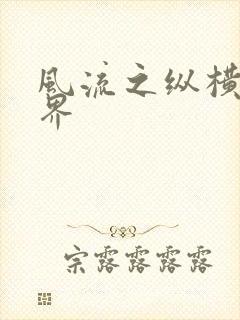 风流之纵横
界
宗露露露露